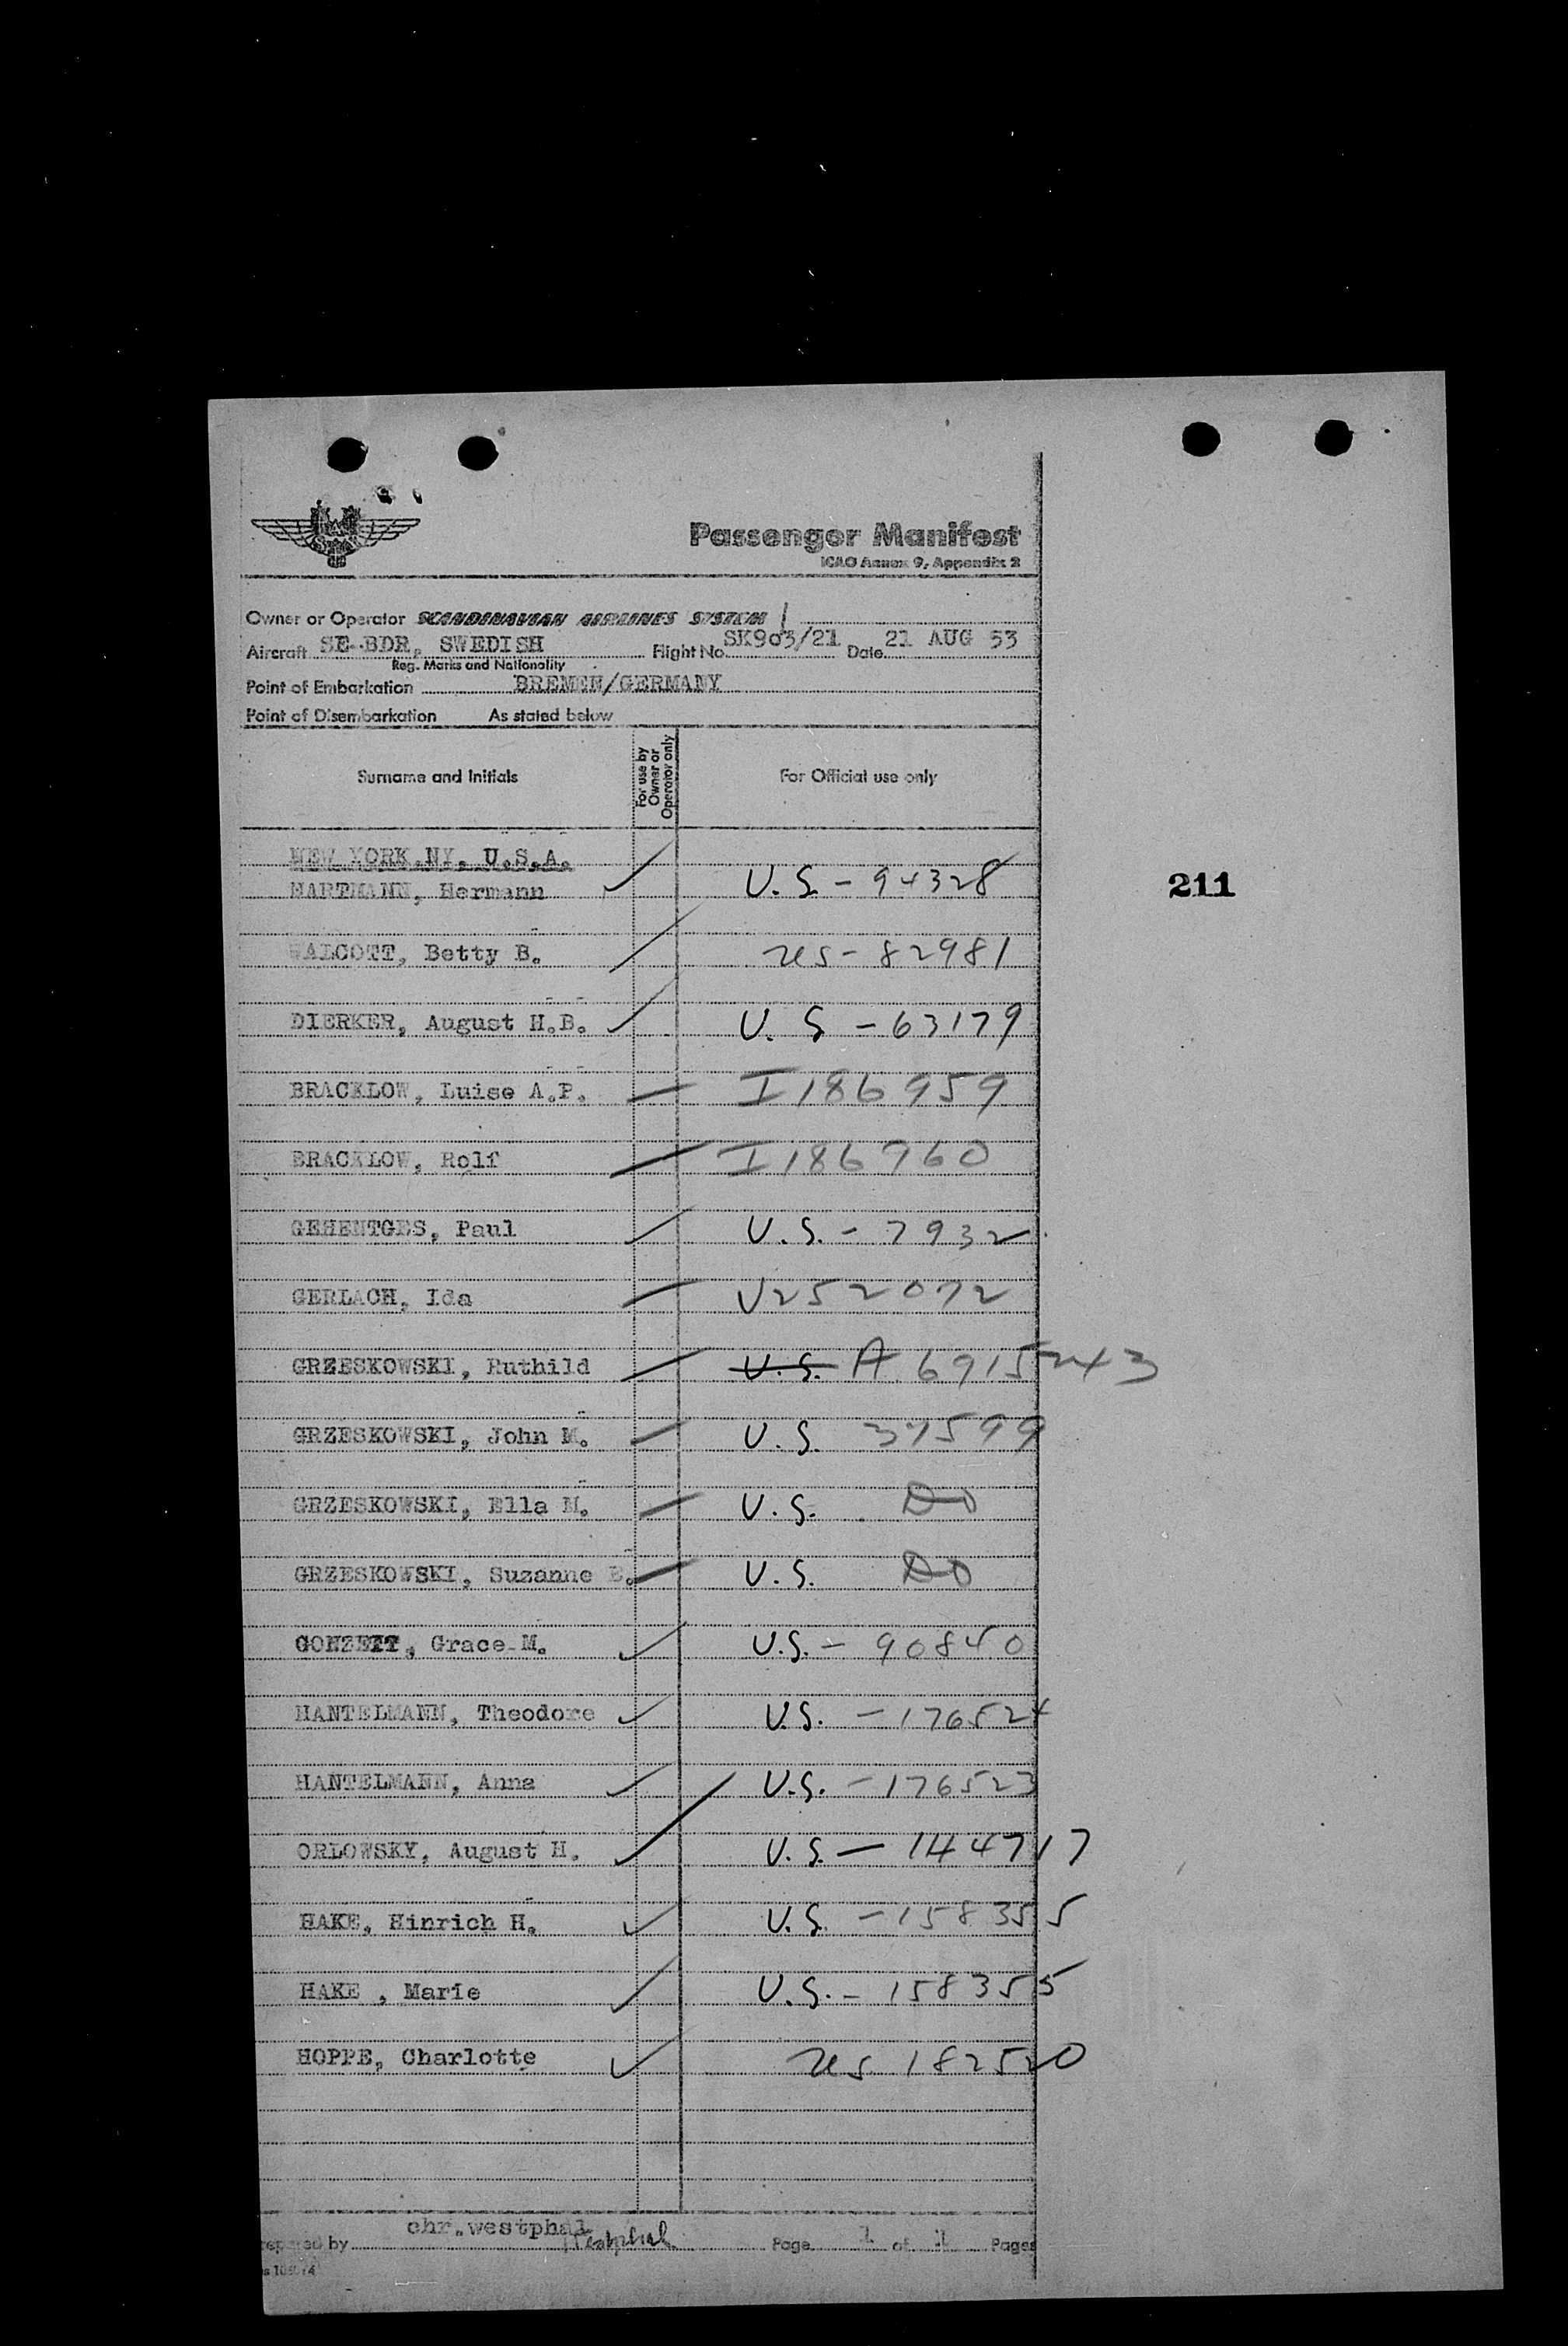 Passenger Manifest
ICAO Annex 9, Appendix 2
Owner or Operator SCANDINAVIAN AIRLINES SYSTEM
Aircraft SE-BDR, SWEDISH Flight No. SK903/21 Date 21 AUG 53
Reg. Marks and Nationality
Point of Embarkation BREMEN/GERMANY
Point of Disembarkation As stated below
Surname and Initials For use by Owner or Operator only For Official use only
NEW YORK.NY, U.S.A.
HARTMANN, Hermann U.S. - 94328
211
WALCOTT, Betty B. US - 82981
DIERKER, August H.B. U.S - 63179
BRACKLOW, Luise A.P. I186959
BRACKLOW, Rolf I186960
GEHENTGES, Paul U.S. - 7932
GERLACH, Ida V252072
GRZESKOWSKI, Ruthild U.S. A 6915243
GRZESKOWSKI, John M. U.S. 37599
GRZESKOWSKI, Ella M. U.S. DO
GRZESKOWSKI, Suzanne E. U.S. DO
GONZETT, Grace M. U.S. - 90840
HANTELMANN, Theodore U.S. - 176524
HANTELMANN, Anna U.S. - 176523
ORLOWSKY, August H. U.S. - 144717
HAKE, Hinrich H. U.S. - 158355
HAKE , Marie U.S. - 158355
HOPPE, Charlotte US 182520
chr.westphal
by Westphal Page 1 of 1 Pages